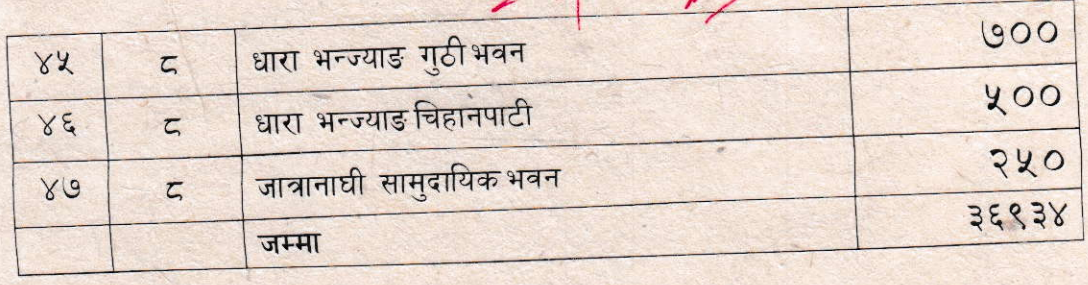 ४५ ८ धारा भन्ज्याङ गुठी भवन ७००
४६ ८ धारा भन्ज्याङ चिहानपाटी ५००
४७ ८ जात्रानाघी सामुदायिक भवन २५०
जम्मा ३६९३४